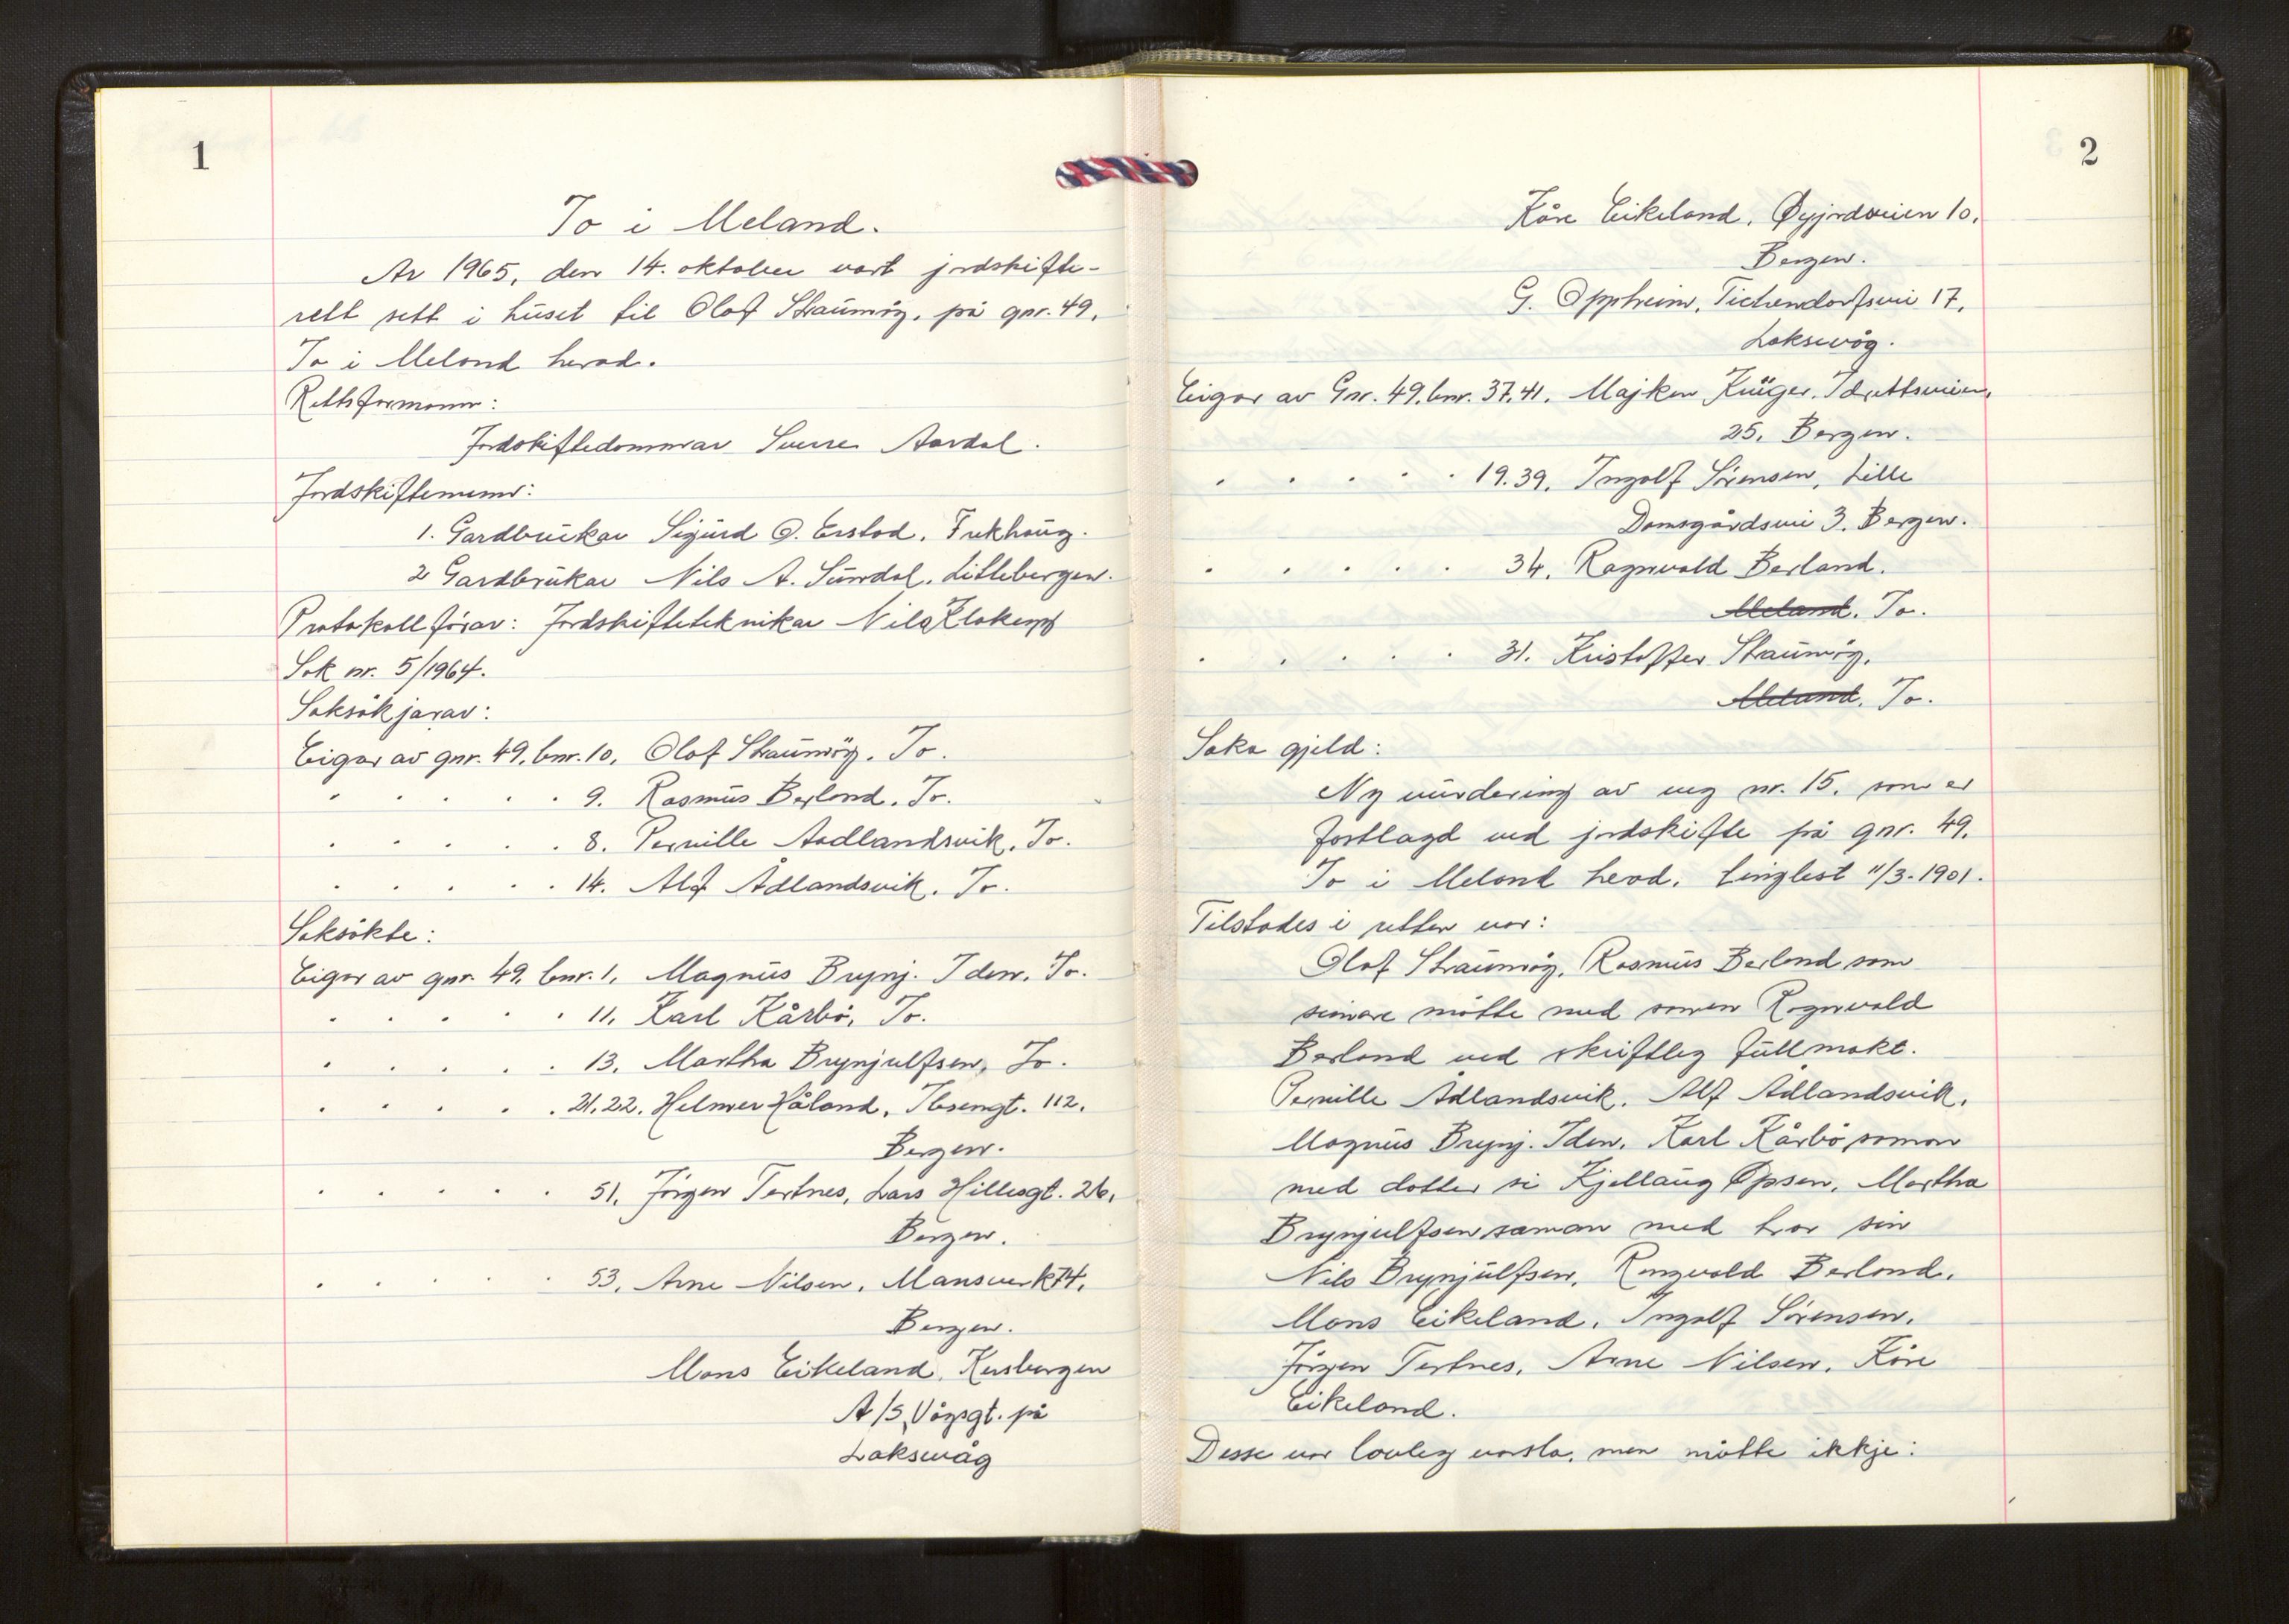 1
To i Meland.
År 1965, den 14. oktober vart jordskifte-
rett sett i huset til Olaf Straumøy, på gnr. 49.
To i Meland herad.
Rettsformann:
Jordskiftedommar Sverre Aardal.
Jordskiftemenn:
1. Gardbrukar Sigurd O. Erstad, Frekhaug.
2 Gardbrukar Nils A. Sundal, Litlebergen.
Protokollførar: Jordskifteteknikar Nils
Sak nr. 5/1964.
Saksøkjarar:
Eigar av gnr. 49, bnr. 10, Olaf Straumøy. To.
" " " " " 9. Rasmus Berland. To.
" " " " " 8. Pernille Aadlandsvik. To.
" " " " " 14. Alf Ådlandsvik. To.
Saksøkte:
Eigar av gnr. 49, bnr. 1, Magnus Brynj. Iden. To.
" " " " " 11. Karl Kårbø, To.
" " " " " 13. Martha Brynjulfsen, To.
" " " " " 21.22. Helmer Håland, Ibsengt. 112.
Bergen.
" " " " " 51. Jørgen Tertnes, Lars Hillesgt. 26,
Bergen.
" " " " " 53. Arne Nilsen, Mansverk 74.
Bergen.
Mons Eikeland,
A/S, Vågsgt. på
Laksevåg
2
Kåre Eikeland, Øyjordsveien 10.
Bergen.
G. Oppheim, Tichendorfsvei 17,
Laksevåg.
Eigar av Gnr. 49, bnr. 37.41. Majken Krüger, Idrettsveien,
25, Bergen.
" " " " " 19.39. Ingolf Sørensen, Lille
Damsgårdsvei 3. Bergen.
" " " " " 34. Ragnvald Berland.
Meland. To.
" " " " " 31. Kristoffer Straumøy,
Meland. To.
Saka gjeld:
Ny vurdering av veg nr. 15. som er
fastlagd ved jordskifte på gnr. 49.
To i Meland herad, tinglest 11/3-1901.
Tilstades i retten var:
Olaf Straumøy, Rasmus Berland som
seinare møtte med sonen Ragnvald
Berland ved skriftleg fullmakt.
Pernille Ådlandsvik, Alf Ådlandsvik,
Magnus Brynj. Iden, Karl Kårbø saman
med dotter si Kjellaug Opsen, Martha
Brynjulfsen saman med bror sin
Nils Brynjulfsen, Ragnvald Berland,
Mons Eikeland, Ingolf Sørensen,
Jørgen Tertnes, Arne Nilsen, Kåre
Eikeland.
Desse var lovleg varsla, men møtte ikkje: